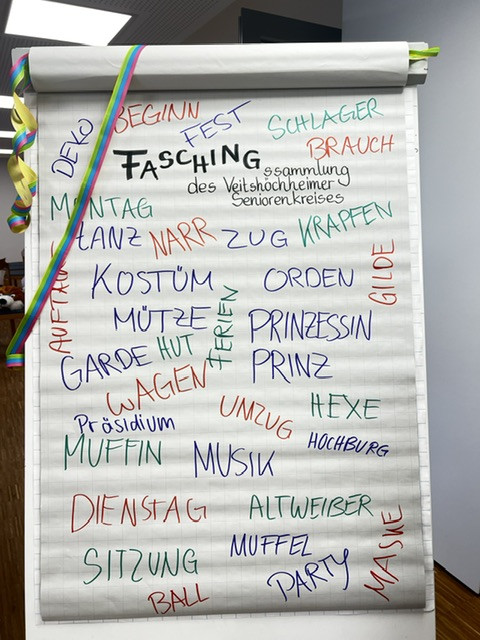 BEGINN
FEST
SCHLAGER
DEKO
BRAUCH
FASCHINGssammlung
des Veitshöchheimer
Seniorenkreises
MONTAG
TANZ
NARR
ZUG
KRAPFEN
GILDE
KOSTÜM
ORDEN
MÜTZE
FERIEN
PRINZESSIN
GARDE
HUT
PRINZ
WAGEN
Präsidium
UMZUG
HEXE
MUFFIN
MUSIK
HOCHBURG
DIENSTAG
ALTWEIBER
MASKE
SITZUNG
MUFFEL
BALL
PARTY